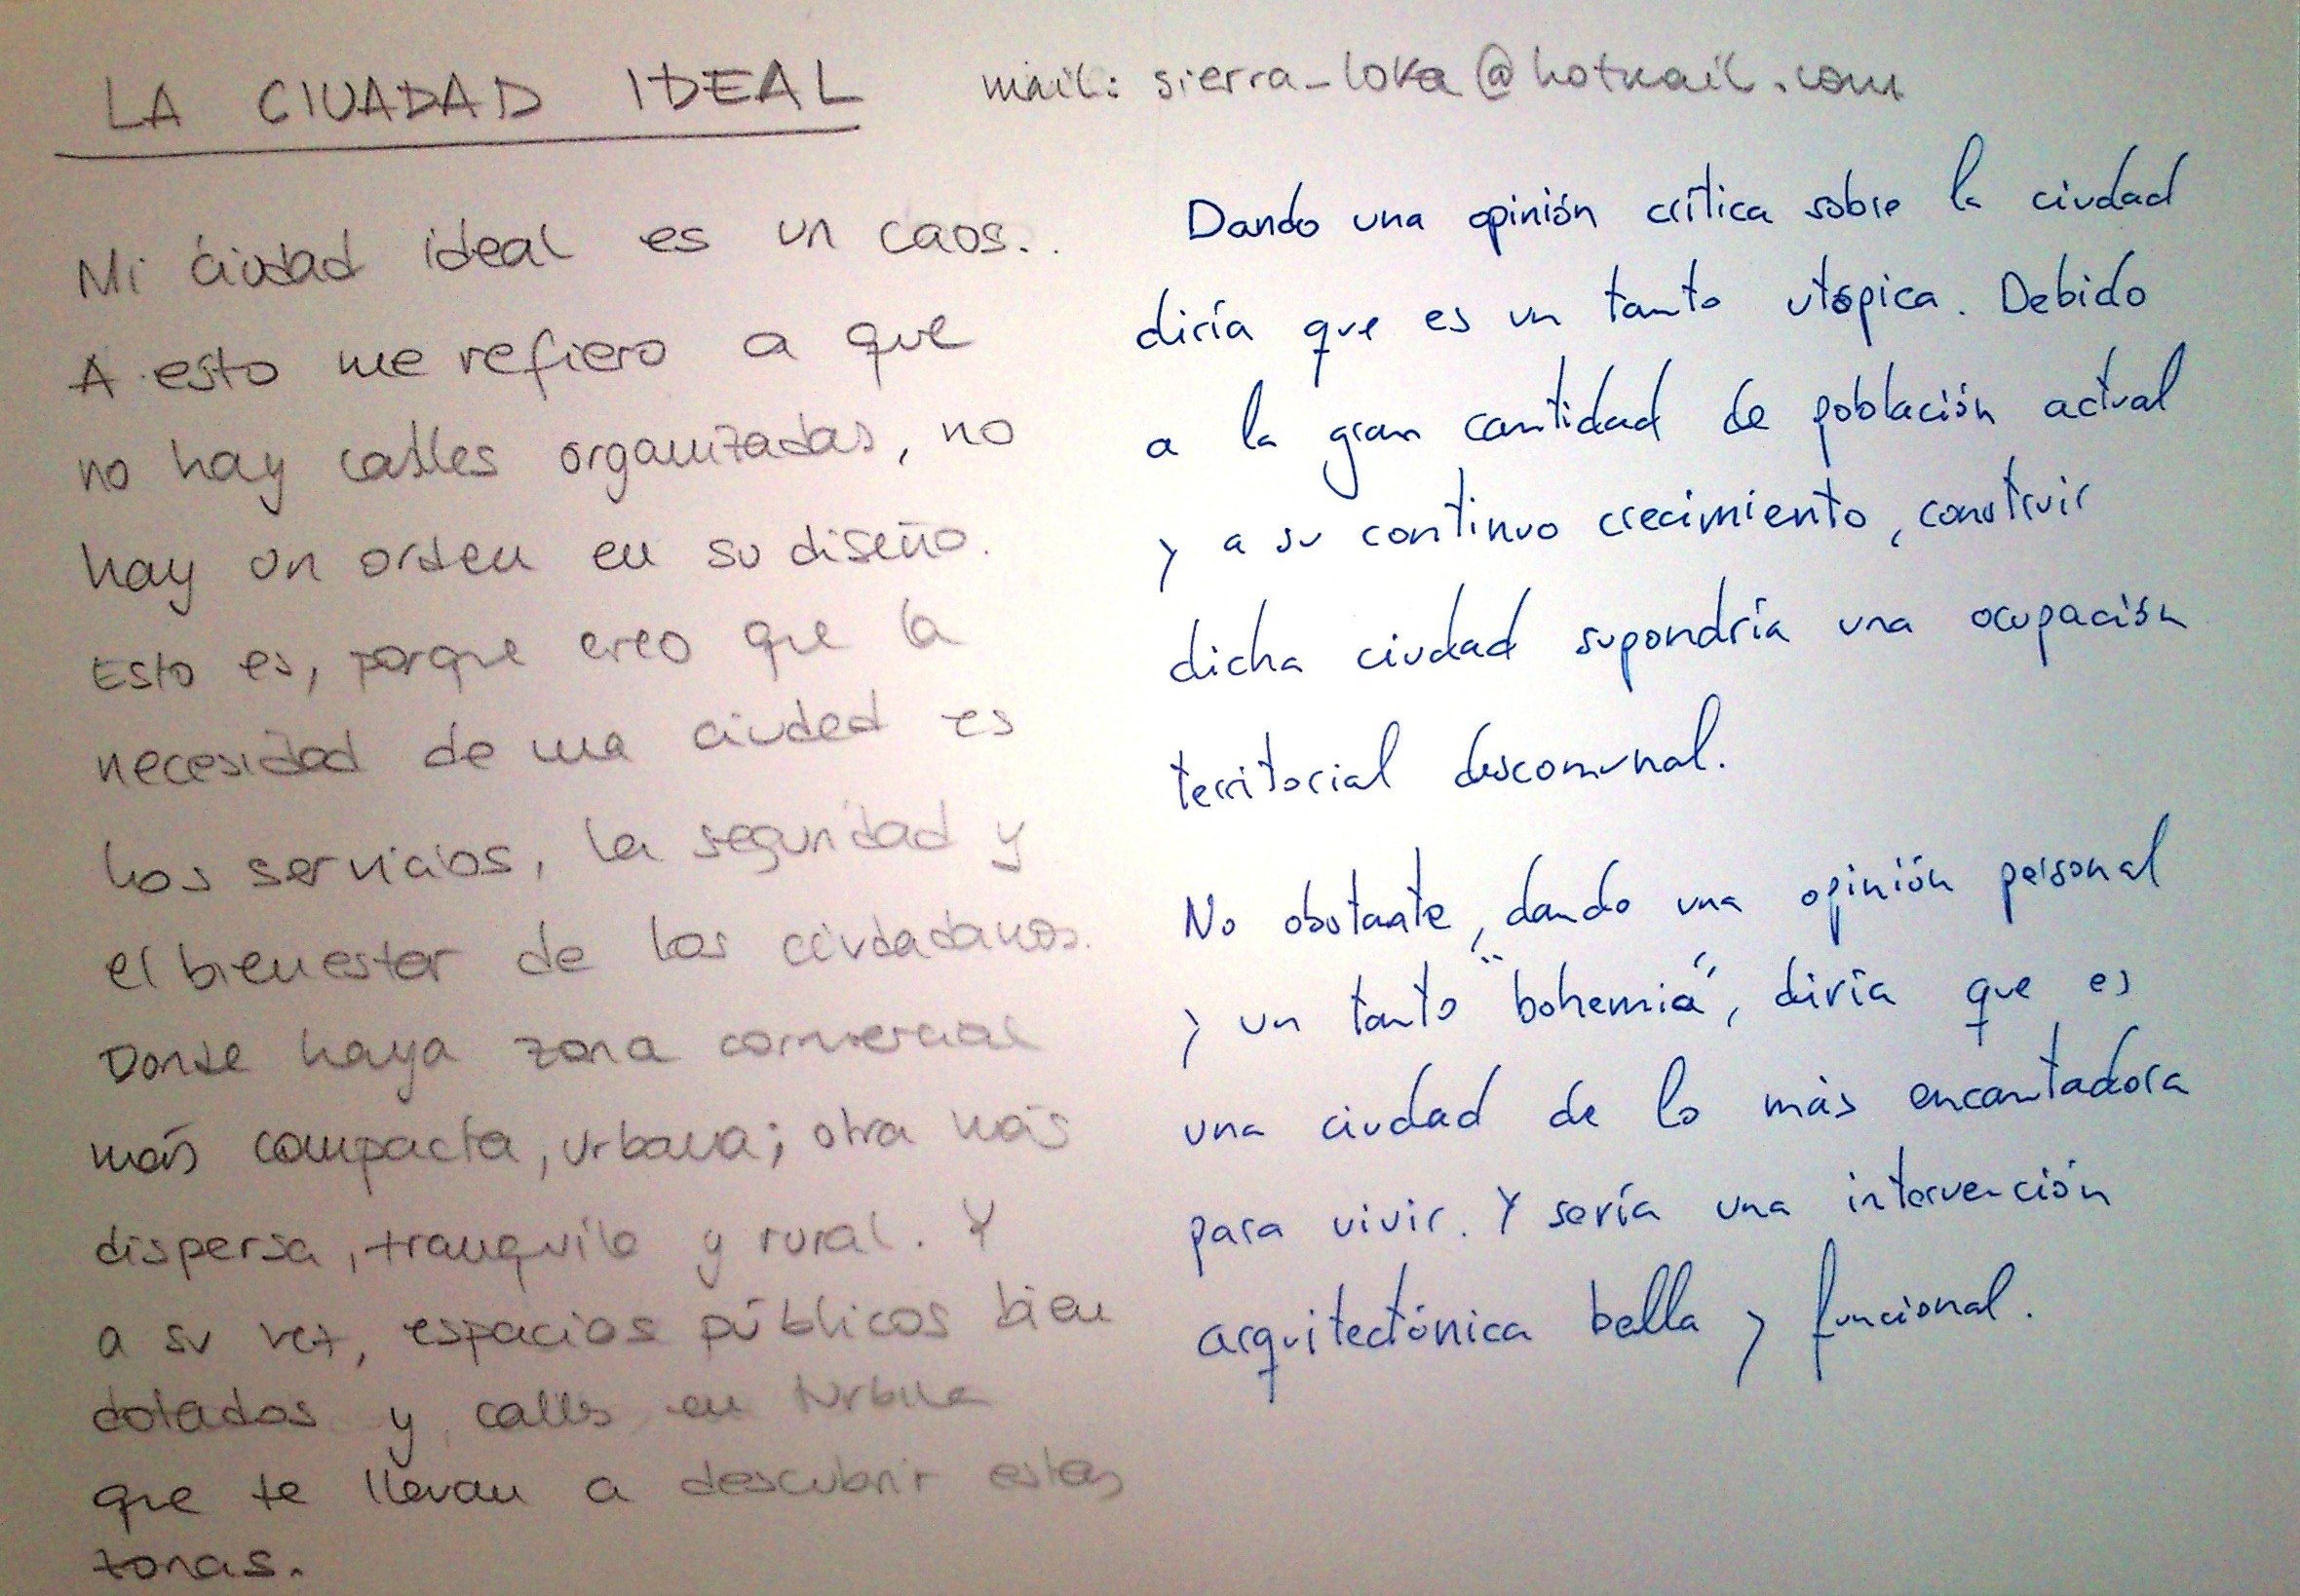 LA CIUADAD IDEAL
mail: sierra_loka@hotmail.com
Mi ciudad ideal es un caos..
A esto me refiero a que
no hay calles organizadas, no
hay un orden en su diseño.
Esto es, porque creo que la
necesidad de una ciudad es
los servicios, la seguridad y
el bienestar de los ciudadanos.
Donde haya zona comercial
más compacta, urbana; otra más
dispersa, tranquila y rural. Y
a su vez, espacios públicos bien
dotados y calles en
que te llevan a descubrir estas
zonas.
Dando una opinión crítica sobre la ciudad
diría que es un tanto utópica. Debido
a la gran cantidad de población actual
y a su continuo crecimiento, construir
dicha ciudad supondría una ocupación
territorial descomunal.
No obstante, dando una opinión personal
y un tanto "bohemia", diría que es
una ciudad de lo más encantadora
para vivir. Y sería una intervención
arquitectónica bella y funcional.